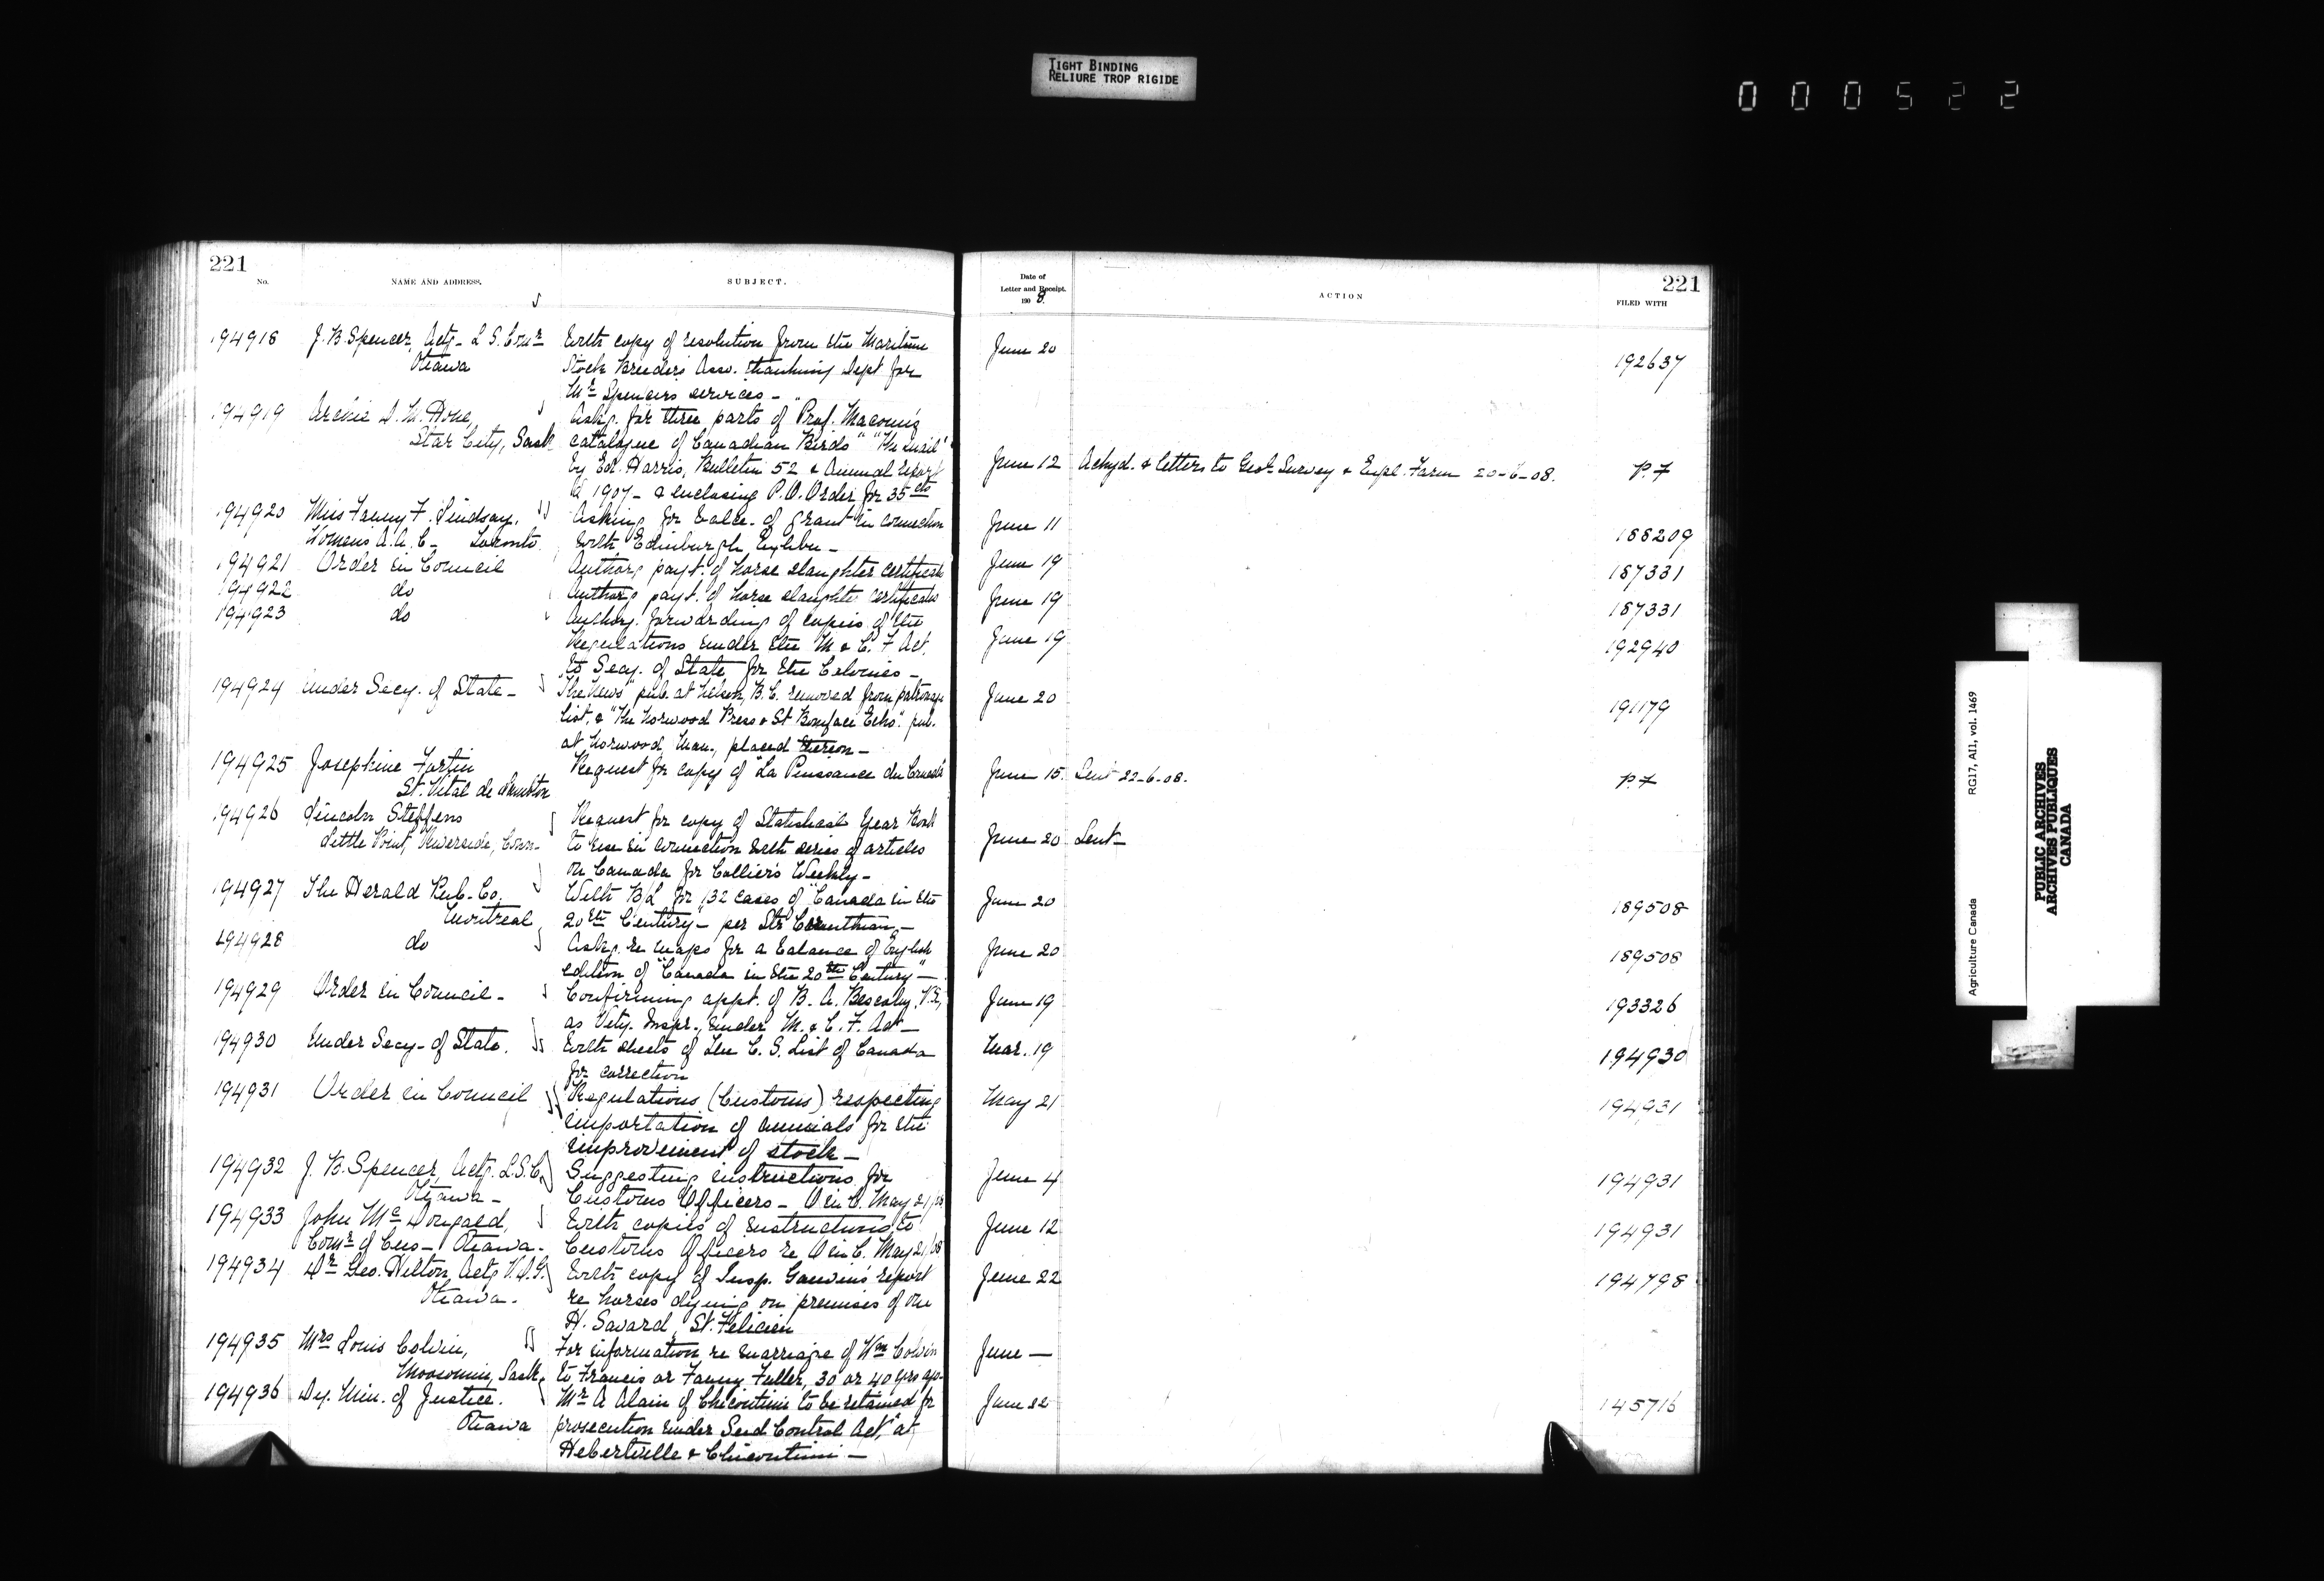 TIGHT BINDING
RELIURE TROP RIGIDE
000522
221
No.
NAME AND ADDRESS.
SUBJECT.
Date of
Letter and Receipt.
1908.
ACTION
221
FILED WITH
194918 J. B. Spencer, Actg. L S. Comr With copy of resolution from the Maritime June 20 192637
Ottawa Stock Breeders Asso. thanking Dept for
Mr Spencer's services -
194919 Archie D. M. Hone, Askg. for three parts of Prof. Macoun's
Star City, Sask catalogue of Canadian Birds" "The
by Ed. Harris, Bulletin 52 & Annual report June 12 Ackgd. & letters to Geol. Survey & Expl. Farm 20-6-08. P.F
for 1907 - & enclosing P.O. Order for 35 cts
194920 Miss Fanny F. Lindsay, Asking for balce. of grant in connection June 11 188209
Womens A.A.C - Toronto with Edinburgh Exhbn -
194921 Order in Council Authorg payt. of horse slaughter certificate June 19 187331
194922 do Authorg payt. of horse slaughter certificates June 19 187331
194923 do Authorg. forwarding of copies of the June 19 192940
Regulations under the M & C. F Act.
to Secy. of State for the Colonies -
194924 Under Secy. of State - "The News" pub. at Nelson, B.C. removed from patronage June 20 191179
list, & "The Norwood Press & St Boniface Echo". pub.
at Norwood, Man., placed thereon -
194925 Josephine Fortin Request for copy of "La Puissance du Canada" June 15. Sent 22-6-08. P.F
St. Vital de Lambton
194926 Lincoln Steffens Request for copy of Statistical Year Book
Little Point, Riverside, Conn- to use in connection with series of articles June 20 Sent -
on Canada for Collier's Weekly -
194927 The Herald Pub. Co. With B/L for 132 cases of "Canada in the June 20 189508
Montreal 20th Century" - per Str Corinthian -
194928 do Askg. re maps for a balance of English June 20 189508
edition of "Canada in the 20th Century" -
194929 Order in Council - Confirming appt. of B. A. V.S., June 19 193326
as Vety. Inspr., under M. & C. F. Act -
194930 Under Secy - of State. With sheets of the C. S. List of Canada Mar. 19 194930
for correction
194931 Order in Council Regulations (Customs) respecting May 21 194931
importation of animals for the
improvement of stock -
194932 J. B. Spencer, Actg. L.S.C. Suggesting instructions for June 4 194931
Ottawa - Customs Officers - O in C. May 21/08
194933 John McDougald, With copies of instructions to June 12 194931
Comr of Cus - Ottawa. Customs Officers re O in C. May 21/08
194934 Dr Geo. Hilton, Actg V.D.G. With copy of Insp. Gauvin's report June 22 194798
Ottawa. re horses dying on premises of one
H. Savard, St. Felicien
194935 Mrs Louis Colvin, For information re marriage of Wm Colvin June -
Moosomin, Sask. to Francis or Fanny Fuller, 30 or 40 yrs ago-
194936 Dy. Min. of Justice. Mr A Alain of Chicoutimi to be retained for June 22 145716
Ottawa prosecution under Seed Control Act, at
Hebertville & Chicoutimi -
Agriculture Canada RG17, AII, vol. 1469
PUBLIC ARCHIVES
ARCHIVES PUBLIQUES
CANADA